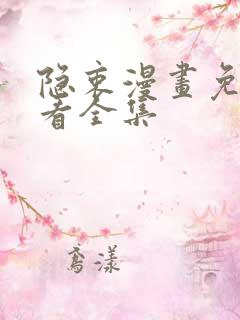 隐衷漫畫免
看全集
斋漾